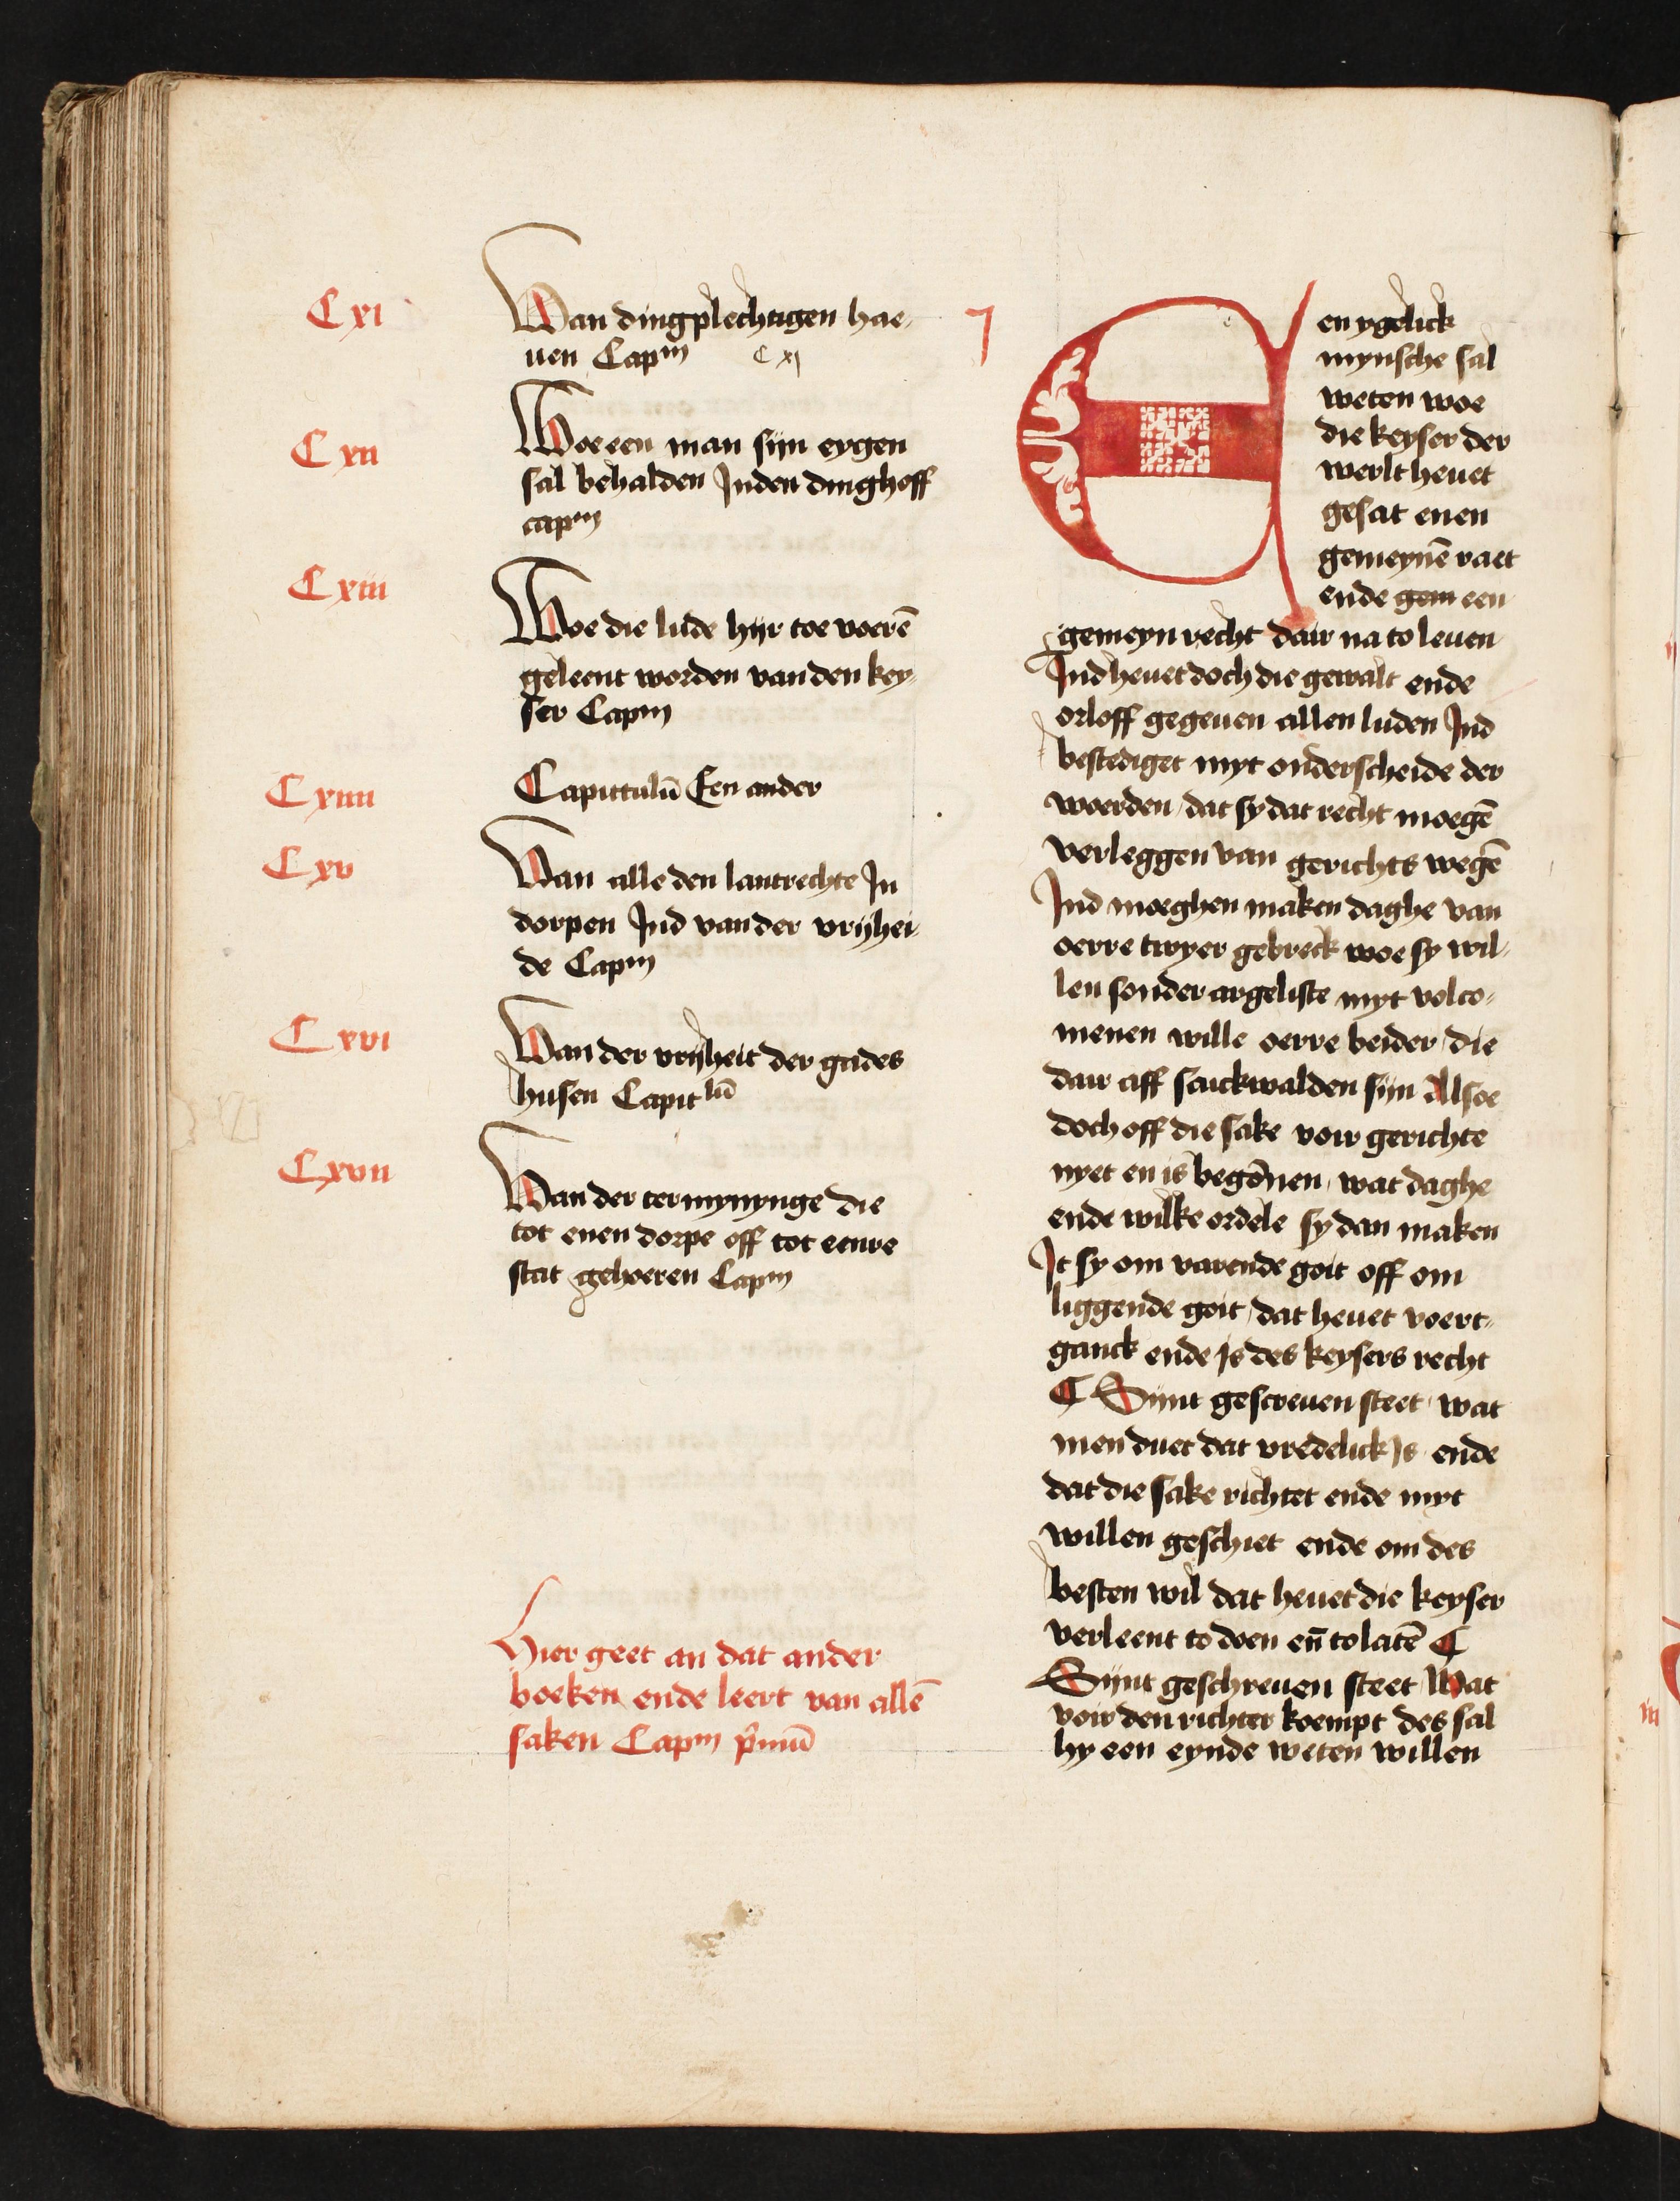 Cxi
Van dingplechtigen hae-
uen Capm Cxj
Cxii
Woe een man sijn eygen
sal behalden Jnden dinghoff
capm
Cxiii
Woe die lude hijr toe voerē
geleent worden van den key-
ser Capm
Cxiiii
Capittulū Een ander
Cxv
Van alle den lantrechte Jn
dorpen Jnd van der vrijhei-
de Capm
Cxvi
Van der vrijheit der gades
husen Capitlū
Cxvii
Van der termynynge die
tot enen dorpe off tot eenre
stat gehoeren Capm
Hier geet an dat ander
boeken ende leert van allē
saken Capm pͥmū
Een ygelick
mynsche sal
weten woe
die keyser der
werlt heuet
gesat enen
gemeynē raet
ende gem een
gemeyn recht dair na to leuen
Jnd heuet doch die gewalt ende
orloff gegeuen allen luden Jnd
bestediget myt onderscheide der
woerden dat sy dat recht moegē
verleggen van gerichts wegē
Jnd moeghen maken daghe van
oerre twyer gebreck woe sy wil-
len sonder argeliste myt volco-
menen wille oerre beider die
dair aff saickwalden sijn Alsoe
doch off die sake voir gerichte
nyet en is begōnen wat daghe
ende wilke ordele sy dan maken
Jt sy om varende goit off om
liggende goit dat heuet voert-
ganck ende is des keysers recht
¶ Sijnt gescreuen steet wat
men duet dat vredelick is ende
dat die sake richtet ende myt
willen geschiet ende om des
besten wil dat heuet die keyser
verleent to doen en̄ to latē ¶
Sijnt geschreuen steet Wat
voir den richter koempt des sal
hy een eynde weten willen